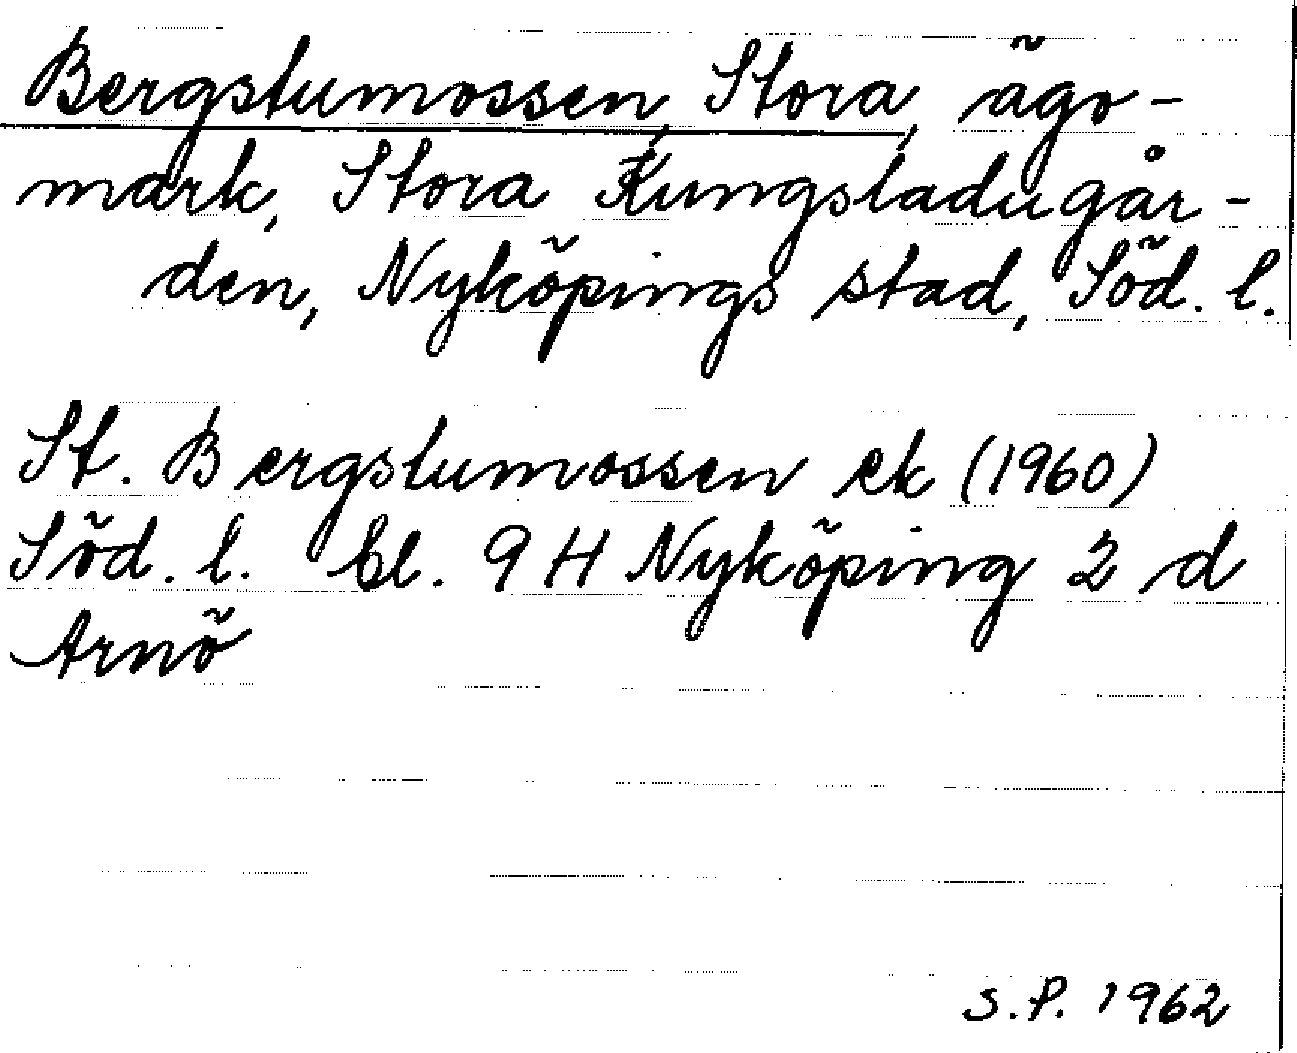 Bergstumossen, Stora, ägo-
mark, Stora Kungsladugår-
den, Nyköpings stad, Söd. l.
St. Bergstumossen ek (1960)
Söd. l. bl. 9 H Nyköping 2 d
Arnö
S.P. 1962